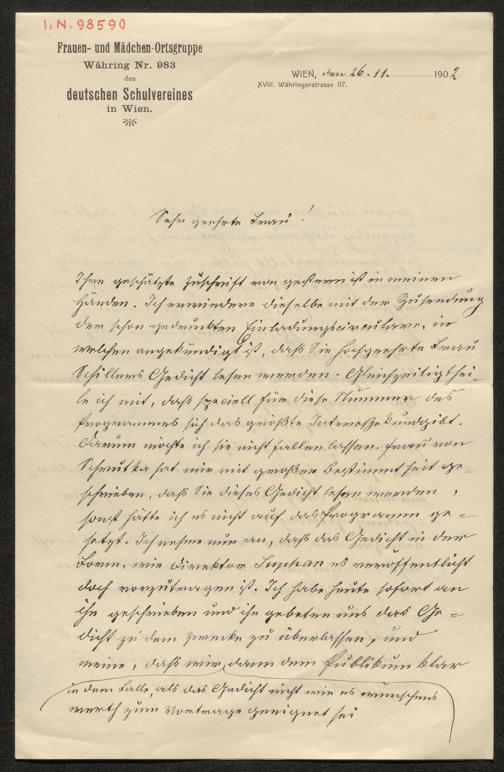 I.N. 98590
Frauen- und Mädchen-Ortsgruppe
Währing Nr. 983
des
deutschen Schulvereines
in Wien.
WIEN, den 26. 11. 1902
XVIII. Währingerstrasse 117.
Sehr geehrte Frau!
Ihre geschätzte Zuschrift von gestern ist in meinen
Händen. Ich erwiedere dieselbe mit der Zusendung
der schon gedruckten Einladungscirculare, in
welchen angekündigt ist, daß Sie hochgeehrte Frau
Schillers Gedicht lesen werden. Gleichzeitig thei-
le ich mit, daß speciell für diese Nummer des
Programmes sich das größte Interesse kundgibt.
Darum möchte ich sie nicht fallen lassen. Frau von
Schrutka hat mir mit großer Bestimmtheit ge-
schrieben, daß Sie dieses Gedicht lesen werden,
sonst hätte ich es nicht auf das Programm ge-
setzt. Ich nehme nun an, daß das Gedicht in der
Form, wie Direktor Suphan es veröffentlicht
doch vorzutragen ist. Ich habe heute sofort an
ihn geschrieben und ihn gebeten uns das Ge-
dicht zu dem Zwecke zu überlassen, und
meine, daß wir, dann dem Publikum klar
in dem Falle, als das Gedicht nicht wie es wünschens
werth zum Vortrage geeignet sei